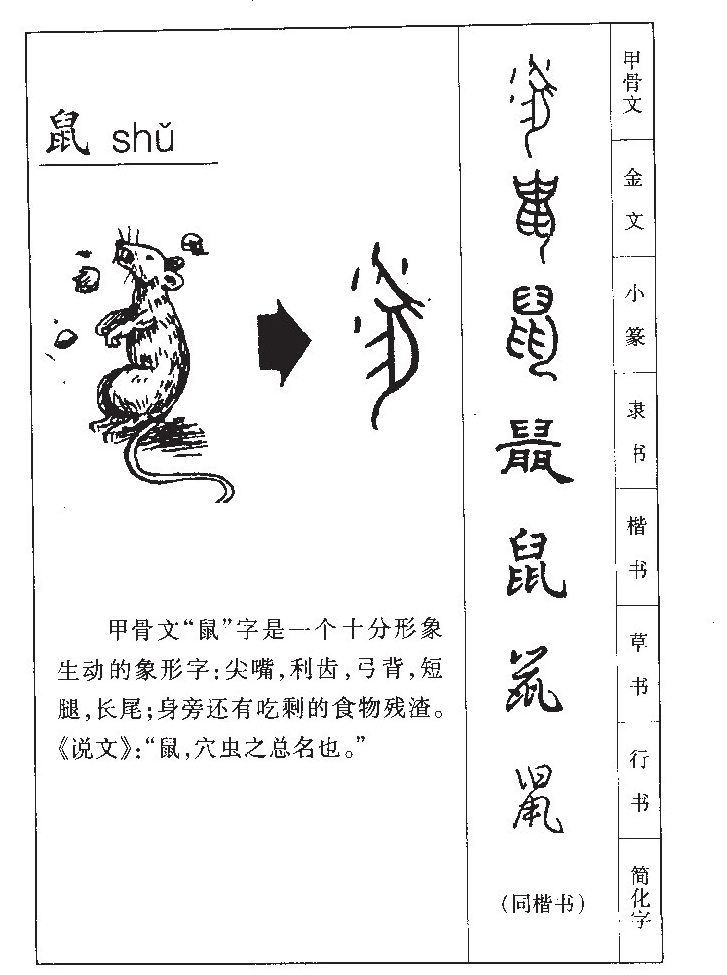 鼠 shǔ
甲骨文“鼠”字是一个十分形象
生动的象形字:尖嘴,利齿,弓背,短
腿,长尾;身旁还有吃剩的食物残渣。
《说文》:“鼠,穴虫之总名也。”
甲骨文
金文
小篆
隶书
鼠
楷书
鼠
草书
鼠
行书
鼠
简化字
(同楷书)